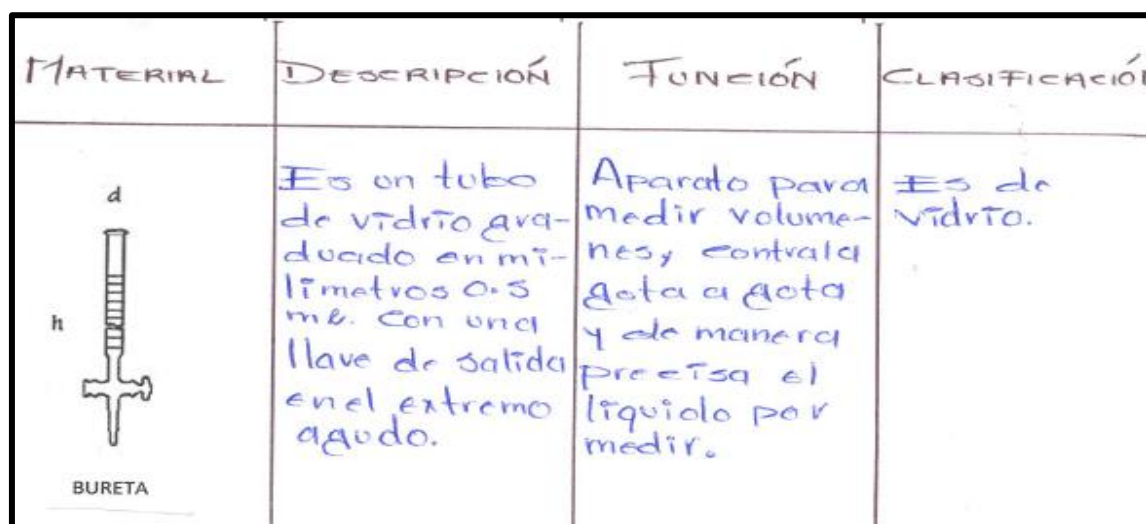 MATERIAL
DESCRIPCIÓN
FUNCIÓN
CLASIFICACIÓN
d
h
BURETA
Es un tubo
de vidrio gra-
duado en mi-
limetros 0.5
ml. con una
llave de salida
en el extremo
agudo.
Aparato para
medir volume-
nes, y contrala
gota a gota
y de manera
precisa el
liquido por
medir.
Es de
vidrio.